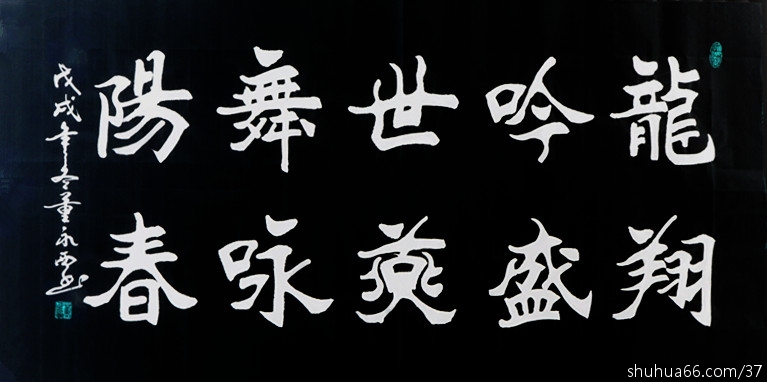 龍翔
吟盛
世燕
舞咏
陽春
戊戌年冬董永
shuhua66.com/37